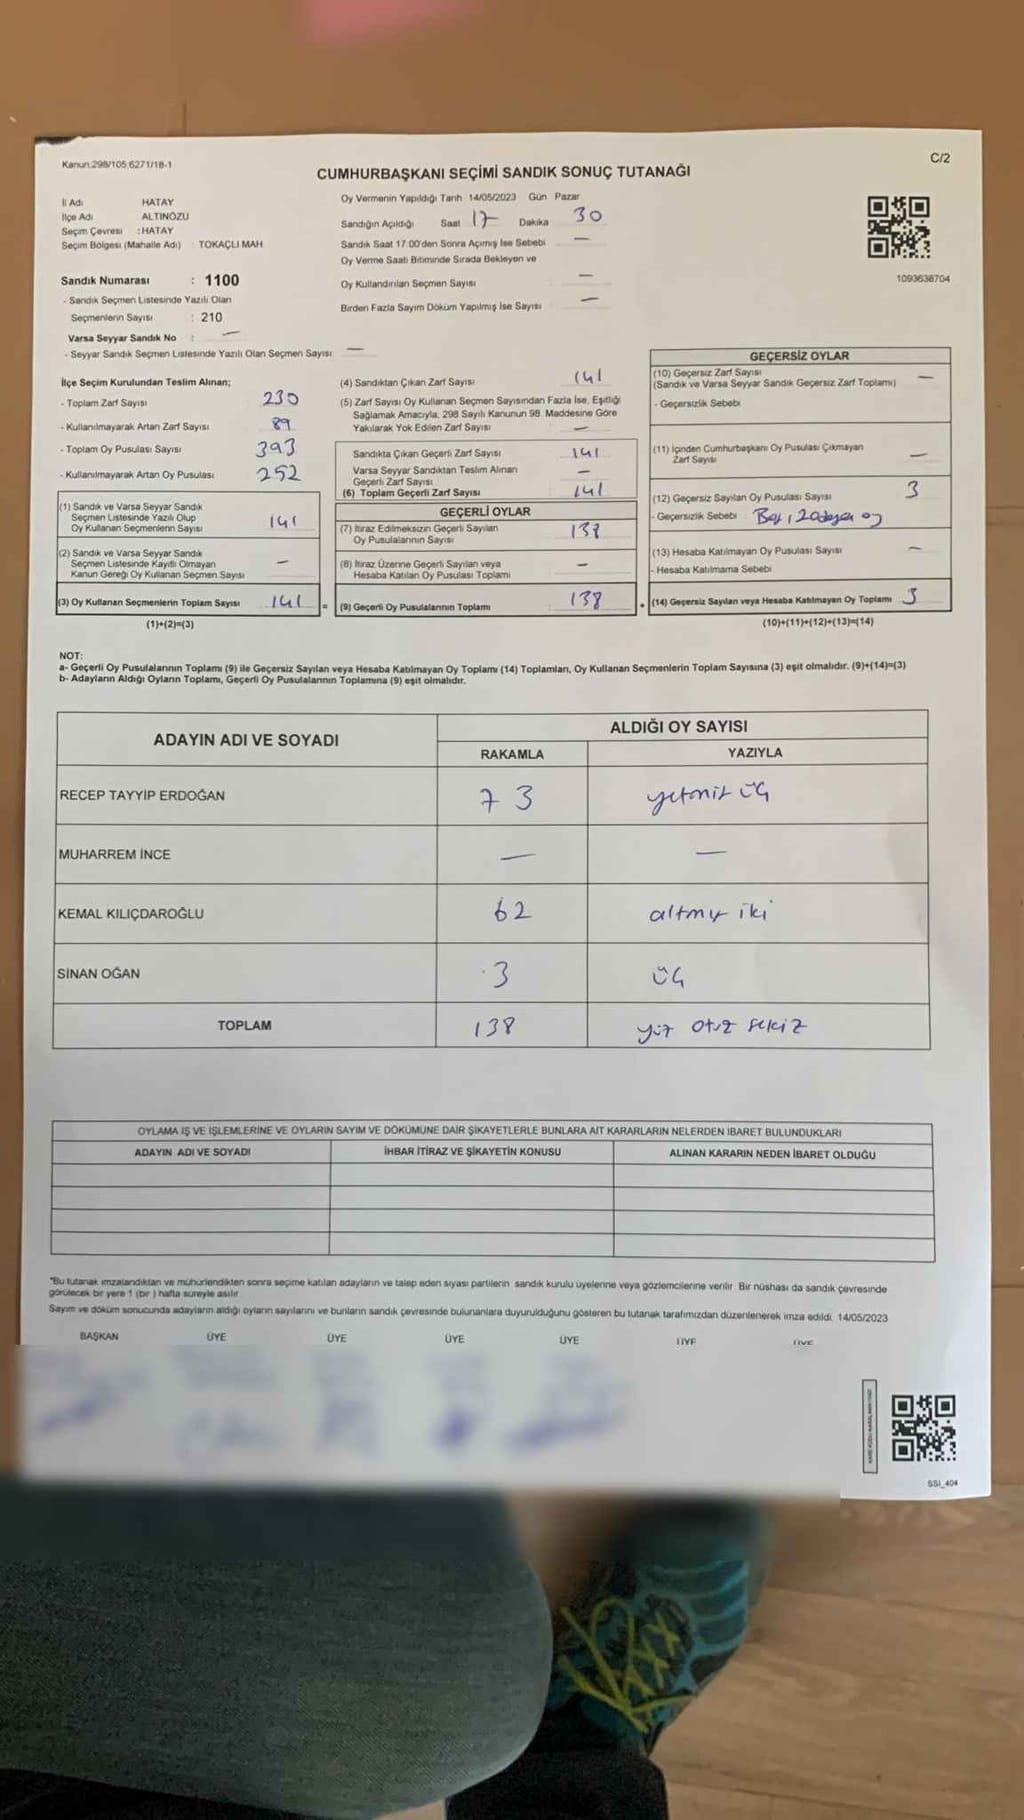 Kanun:298/105;6271/18-1
C/2
CUMHURBAŞKANI SEÇİMİ SANDIK SONUÇ TUTANAĞI
İl Adı HATAY
İlçe Adı ALTINÖZÜ
Seçim Çevresi :HATAY
Seçim Bölgesi (Mahalle Adı) TOKAÇLI MAH
Oy Vermenin Yapıldığı Tarih 14/05/2023 Gün Pazar
Sandığın Açıldığı Saat 17 Dakika 30
Sandık Saat 17:00'den Sonra Açımış İse Sebebi —
Oy Verme Saati Bitiminde Sırada Bekleyen ve
Oy Kullandırılan Seçmen Sayısı —
Birden Fazla Sayım Döküm Yapılmış İse Sayısı —
1093638704
Sandık Numarası : 1100
- Sandık Seçmen Listesinde Yazılı Olan
Seçmenlerin Sayısı : 210
Varsa Seyyar Sandık No : —
- Seyyar Sandık Seçmen Listesinde Yazılı Olan Seçmen Sayısı: —
İlçe Seçim Kurulundan Teslim Alınan;
- Toplam Zarf Sayısı 230
- Kullanılmayarak Artan Zarf Sayısı 89
- Toplam Oy Pusulası Sayısı 393
- Kullanılmayarak Artan Oy Pusulası 252
(1) Sandık ve Varsa Seyyar Sandık
Seçmen Listesinde Yazılı Olup
Oy Kullanan Seçmenlerin Sayısı 141
(2) Sandık ve Varsa Seyyar Sandık
Seçmen Listesinde Kayıtlı Olmayan
Kanun Gereği Oy Kullanan Seçmen Sayısı —
(3) Oy Kullanan Seçmenlerin Toplam Sayısı 141 =
(1)+(2)=(3)
(4) Sandıktan Çıkan Zarf Sayısı 141
(5) Zarf Sayısı Oy Kullanan Seçmen Sayısından Fazla İse, Eşitliği
Sağlamak Amacıyla, 298 Sayılı Kanunun 98. Maddesine Göre
Yakılarak Yok Edilen Zarf Sayısı —
Sandıkta Çıkan Geçerli Zarf Sayısı 141
Varsa Seyyar Sandıktan Teslim Alınan
Geçerli Zarf Sayısı —
(6) Toplam Geçerli Zarf Sayısı 141
GEÇERLİ OYLAR
(7) İtiraz Edilmeksizin Geçerli Sayılan
Oy Pusulalarının Sayısı 138
(8) İtiraz Üzerine Geçerli Sayılan veya
Hesaba Katılan Oy Pusulası Toplamı —
(9) Geçerli Oy Pusulalarının Toplamı 138 +
GEÇERSİZ OYLAR
(10) Geçersiz Zarf Sayısı
(Sandık ve Varsa Seyyar Sandık Geçersiz Zarf Toplamı) —
- Geçersizlik Sebebi
(11) İçinden Cumhurbaşkanı Oy Pusulası Çıkmayan
Zarf Sayısı —
(12) Geçersiz Sayılan Oy Pusulası Sayısı 3
- Geçersizlik Sebebi Boş, 2 adaya oy
(13) Hesaba Katılmayan Oy Pusulası Sayısı —
- Hesaba Katılmama Sebebi
(14) Geçersiz Sayılan veya Hesaba Katılmayan Oy Toplamı 3
(10)+(11)+(12)+(13)=(14)
NOT:
a- Geçerli Oy Pusulalarının Toplamı (9) ile Geçersiz Sayılan veya Hesaba Katılmayan Oy Toplamı (14) Toplamları, Oy Kullanan Seçmenlerin Toplam Sayısına (3) eşit olmalıdır. (9)+(14)=(3)
b- Adayların Aldığı Oyların Toplamı, Geçerli Oy Pusulalarının Toplamına (9) eşit olmalıdır.
ADAYIN ADI VE SOYADI ALDIĞI OY SAYISI
RAKAMLA YAZIYLA
RECEP TAYYİP ERDOĞAN 73 yetmiş üç
MUHARREM İNCE — —
KEMAL KILIÇDAROĞLU 62 altmış iki
SİNAN OĞAN 3 üç
TOPLAM 138 yüz otuz sekiz
OYLAMA İŞ VE İŞLEMLERİNE VE OYLARIN SAYIM VE DÖKÜMÜNE DAİR ŞİKAYETLERLE BUNLARA AİT KARARLARIN NELERDEN İBARET BULUNDUKLARI
ADAYIN ADI VE SOYADI İHBAR İTİRAZ VE ŞİKAYETİN KONUSU ALINAN KARARIN NEDEN İBARET OLDUĞU
*Bu tutanak imzalandıktan ve mühürlendikten sonra seçime katılan adayların ve talep eden siyasi partilerin sandık kurulu üyelerine veya gözlemcilerine verilir. Bir nüshası da sandık çevresinde
görülecek bir yere 1 (bir) hafta süreyle asılır.
Sayım ve döküm sonucunda adayların aldığı oyların sayılarını ve bunların sandık çevresinde bulunanlara duyurulduğunu gösteren bu tutanak tarafımızdan düzenlenerek imza edildi. 14/05/2023
BAŞKAN ÜYE ÜYE ÜYE ÜYE ÜYE ÜYE
SSI_404